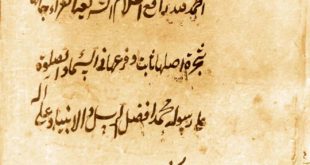 الحمد لله رافع اعلام الشريعة الغراء جاعلها
شجرة اصلها ثابت وفرعها في السماء والصلوة
على رسوله محمد افضل الرسل والانبياء وعلى اله